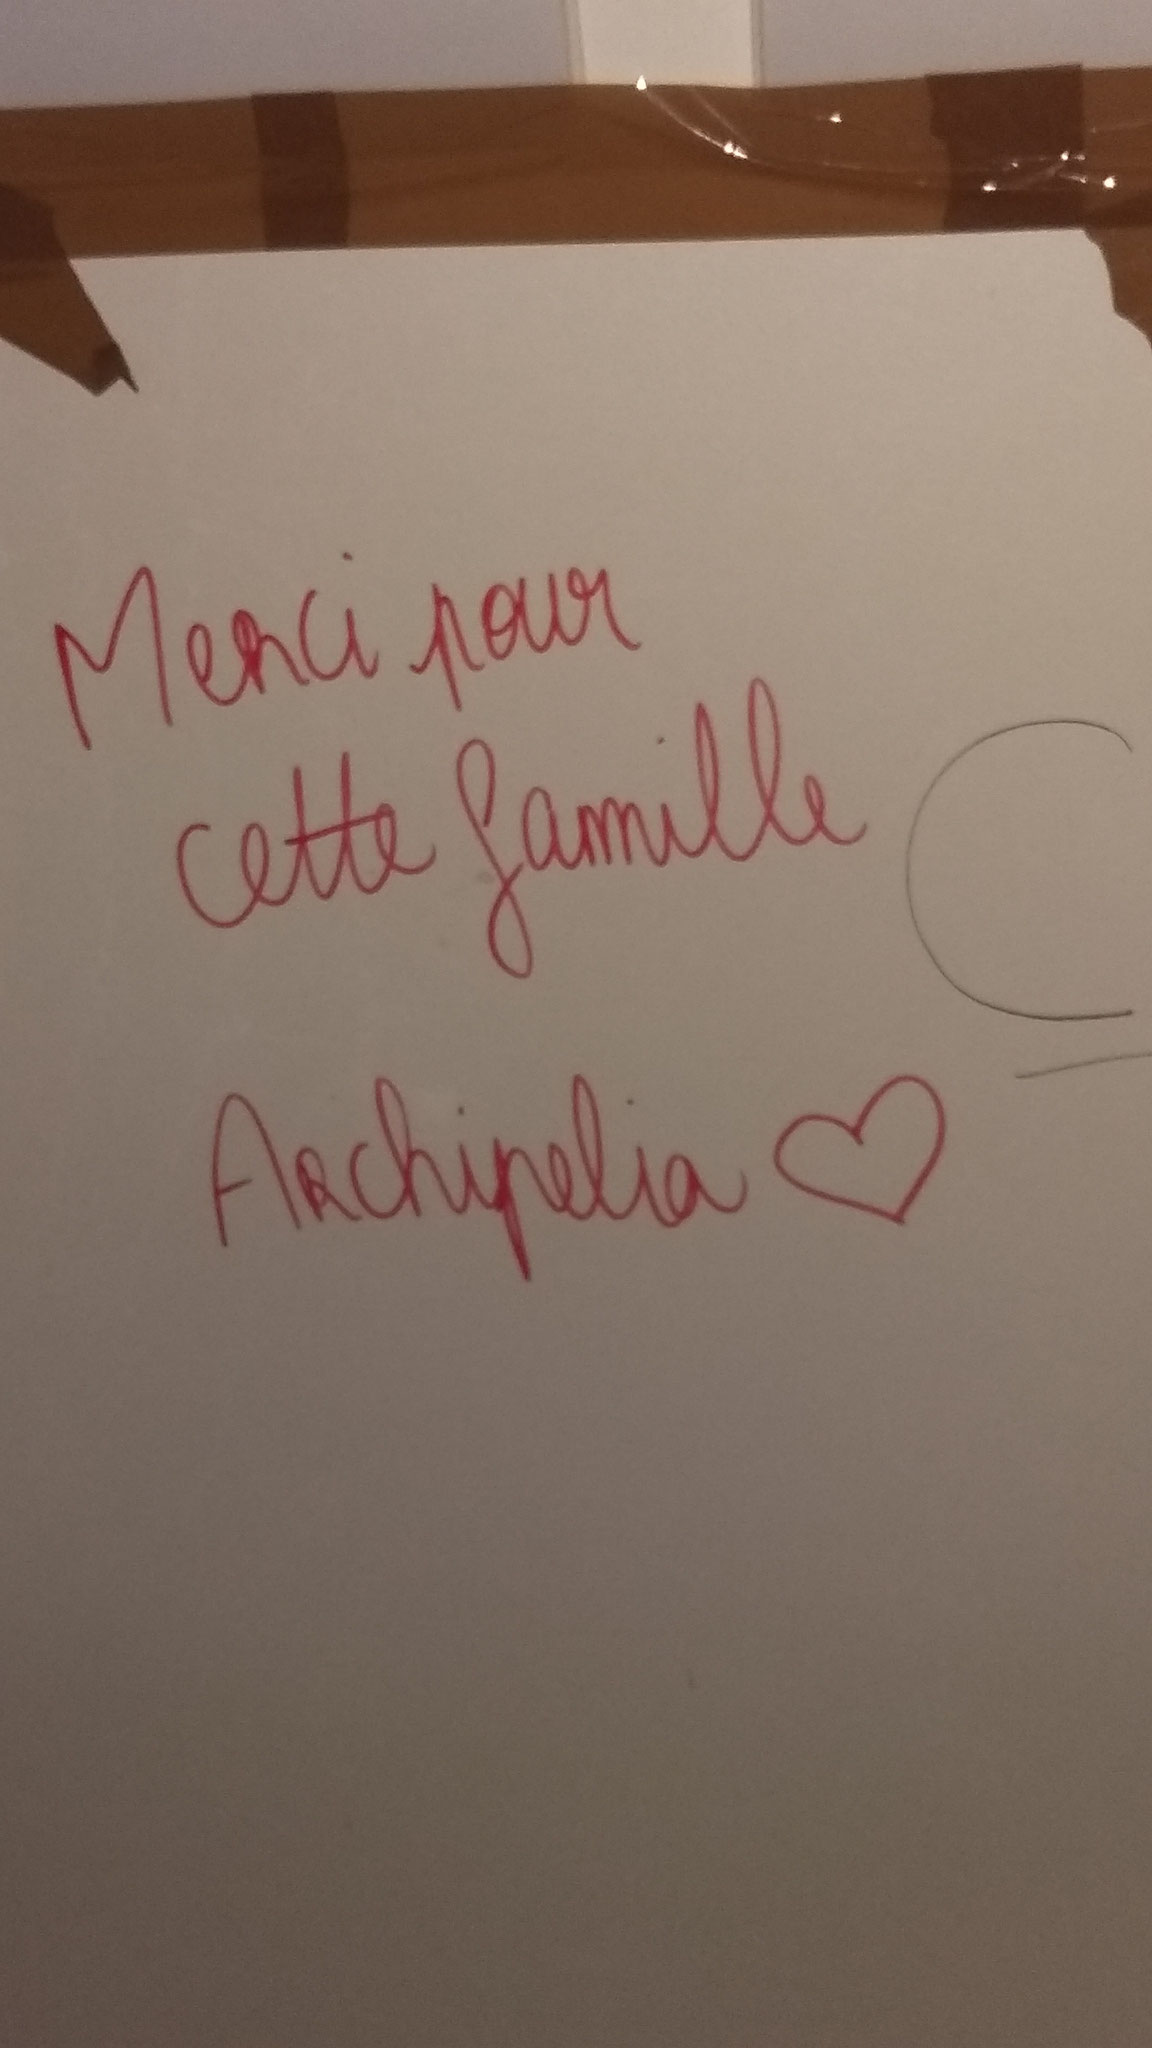 Merci pour
cette famille
Archipelia ♡